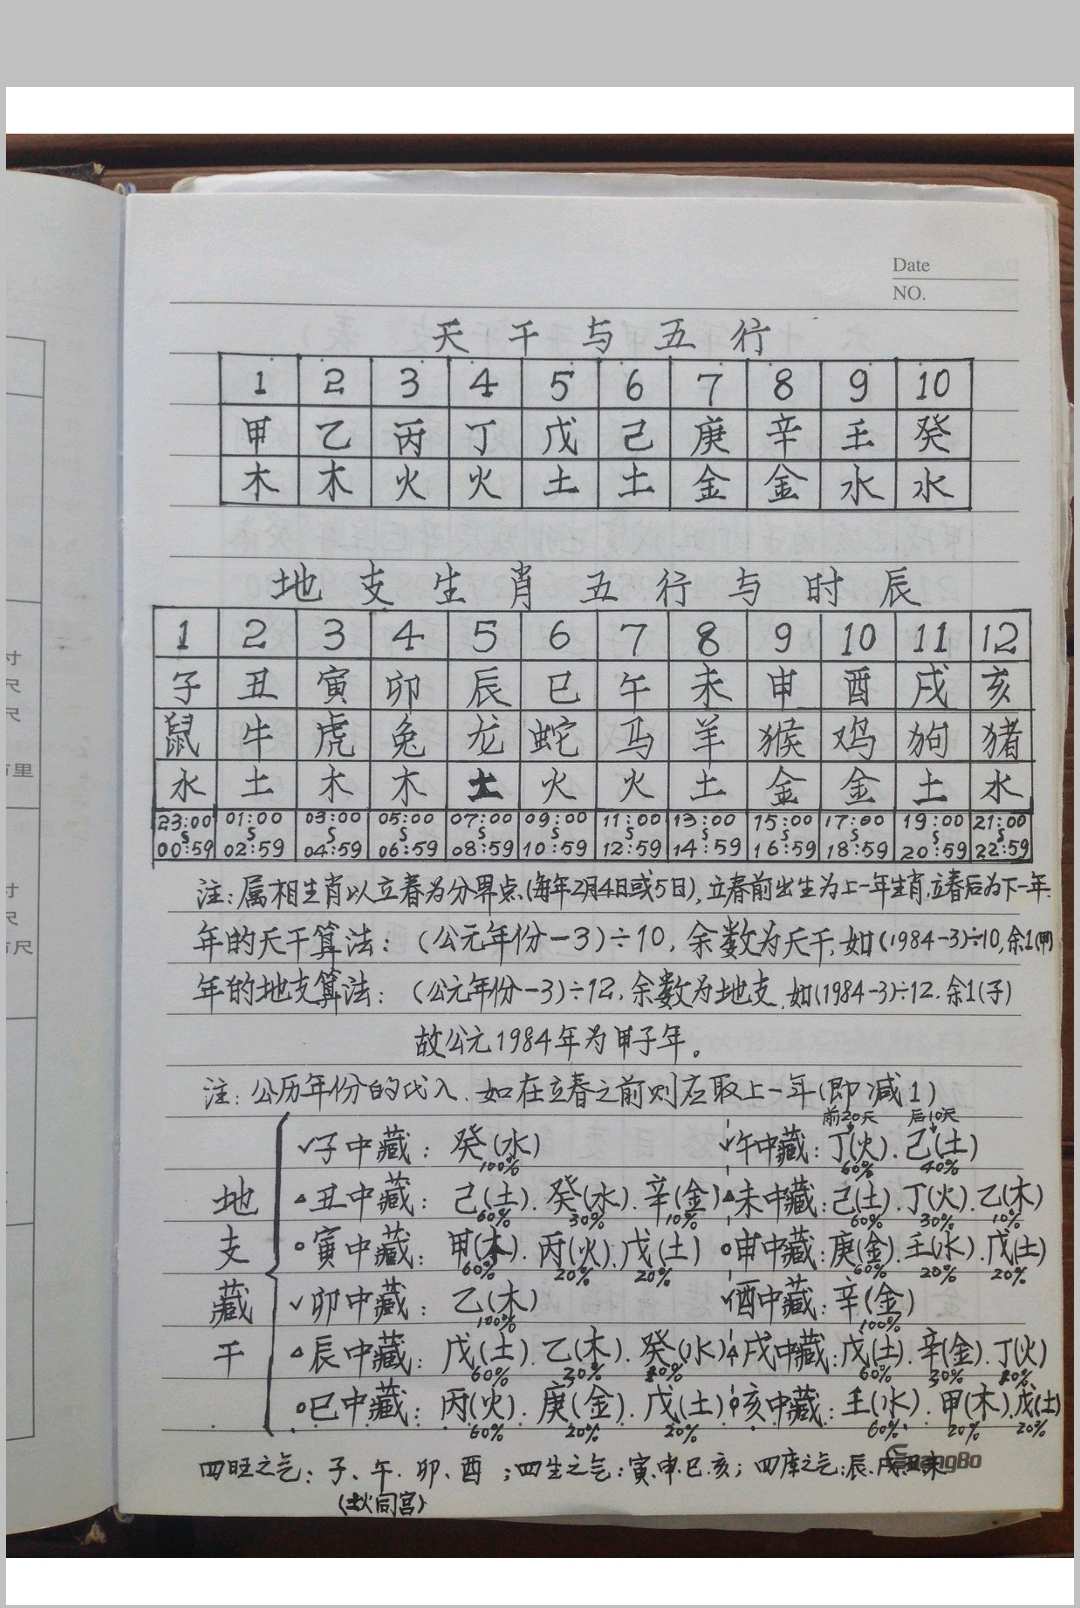 Date
NO.
天干与五行
1 2 3 4 5 6 7 8 9 10
甲 乙 丙 丁 戊 己 庚 辛 壬 癸
木 木 火 火 土 土 金 金 水 水
地支生肖五行与时辰
1 2 3 4 5 6 7 8 9 10 11 12
子 丑 寅 卯 辰 巳 午 未 申 酉 戌 亥
鼠 牛 虎 兔 龙 蛇 马 羊 猴 鸡 狗 猪
水 土 木 木 土 火 火 土 金 金 土 水
23:00 01:00 03:00 05:00 07:00 09:00 11:00 13:00 15:00 17:00 19:00 21:00
00:59 02:59 04:59 06:59 08:59 10:59 12:59 14:59 16:59 18:59 20:59 22:59
注:属相生肖以立春为分界点,(每年2月4日或5日),立春前出生为上一年生肖,立春后为下一年.
年的天干算法:(公元年份-3)÷10,余数为天干,如(1984-3)÷10,余1(甲)
年的地支算法:(公元年份-3)÷12,余数为地支,如(1984-3)÷12.余1(子)
故公元1984年为甲子年。
注:公历年份的代入.如在立春之前则应取上一年(即减1)
前20天 后10天
✓子中藏:癸(水) ✓午中藏:丁(火).己(土)
100% 60% 40%
地 △丑中藏:己(土).癸(水).辛(金) △未中藏:己(土).丁(火).乙(木)
60% 30% 10% 60% 30% 10%
支 ○寅中藏:甲(木).丙(火).戊(土) ○申中藏:庚(金).壬(水).戊(土)
60% 20% 20% 60% 20% 20%
藏 ✓卯中藏:乙(木) ✓酉中藏:辛(金)
100% 100%
干 △辰中藏:戊(土).乙(木).癸(水) △戌中藏:戊(土).辛(金).丁(火)
60% 30% 60% 30%
○巳中藏:丙(火).庚(金).戊(土) ○亥中藏:壬(水).甲(木).戊(土)
60% 20% 20% 60% 20% 20%
四旺之气:子、午.卯、酉;四生之气:寅.申.巳.亥;四库之气:辰.戌.丑.未
(土火同宫)
寸
尺
尺
里
寸
尺
尺